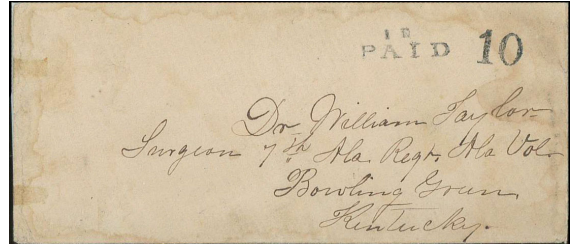 PAID 10
Dr William Taylor
Surgeon 7th Ala Regt. Ala Vol
Bowling Green
Kentucky.